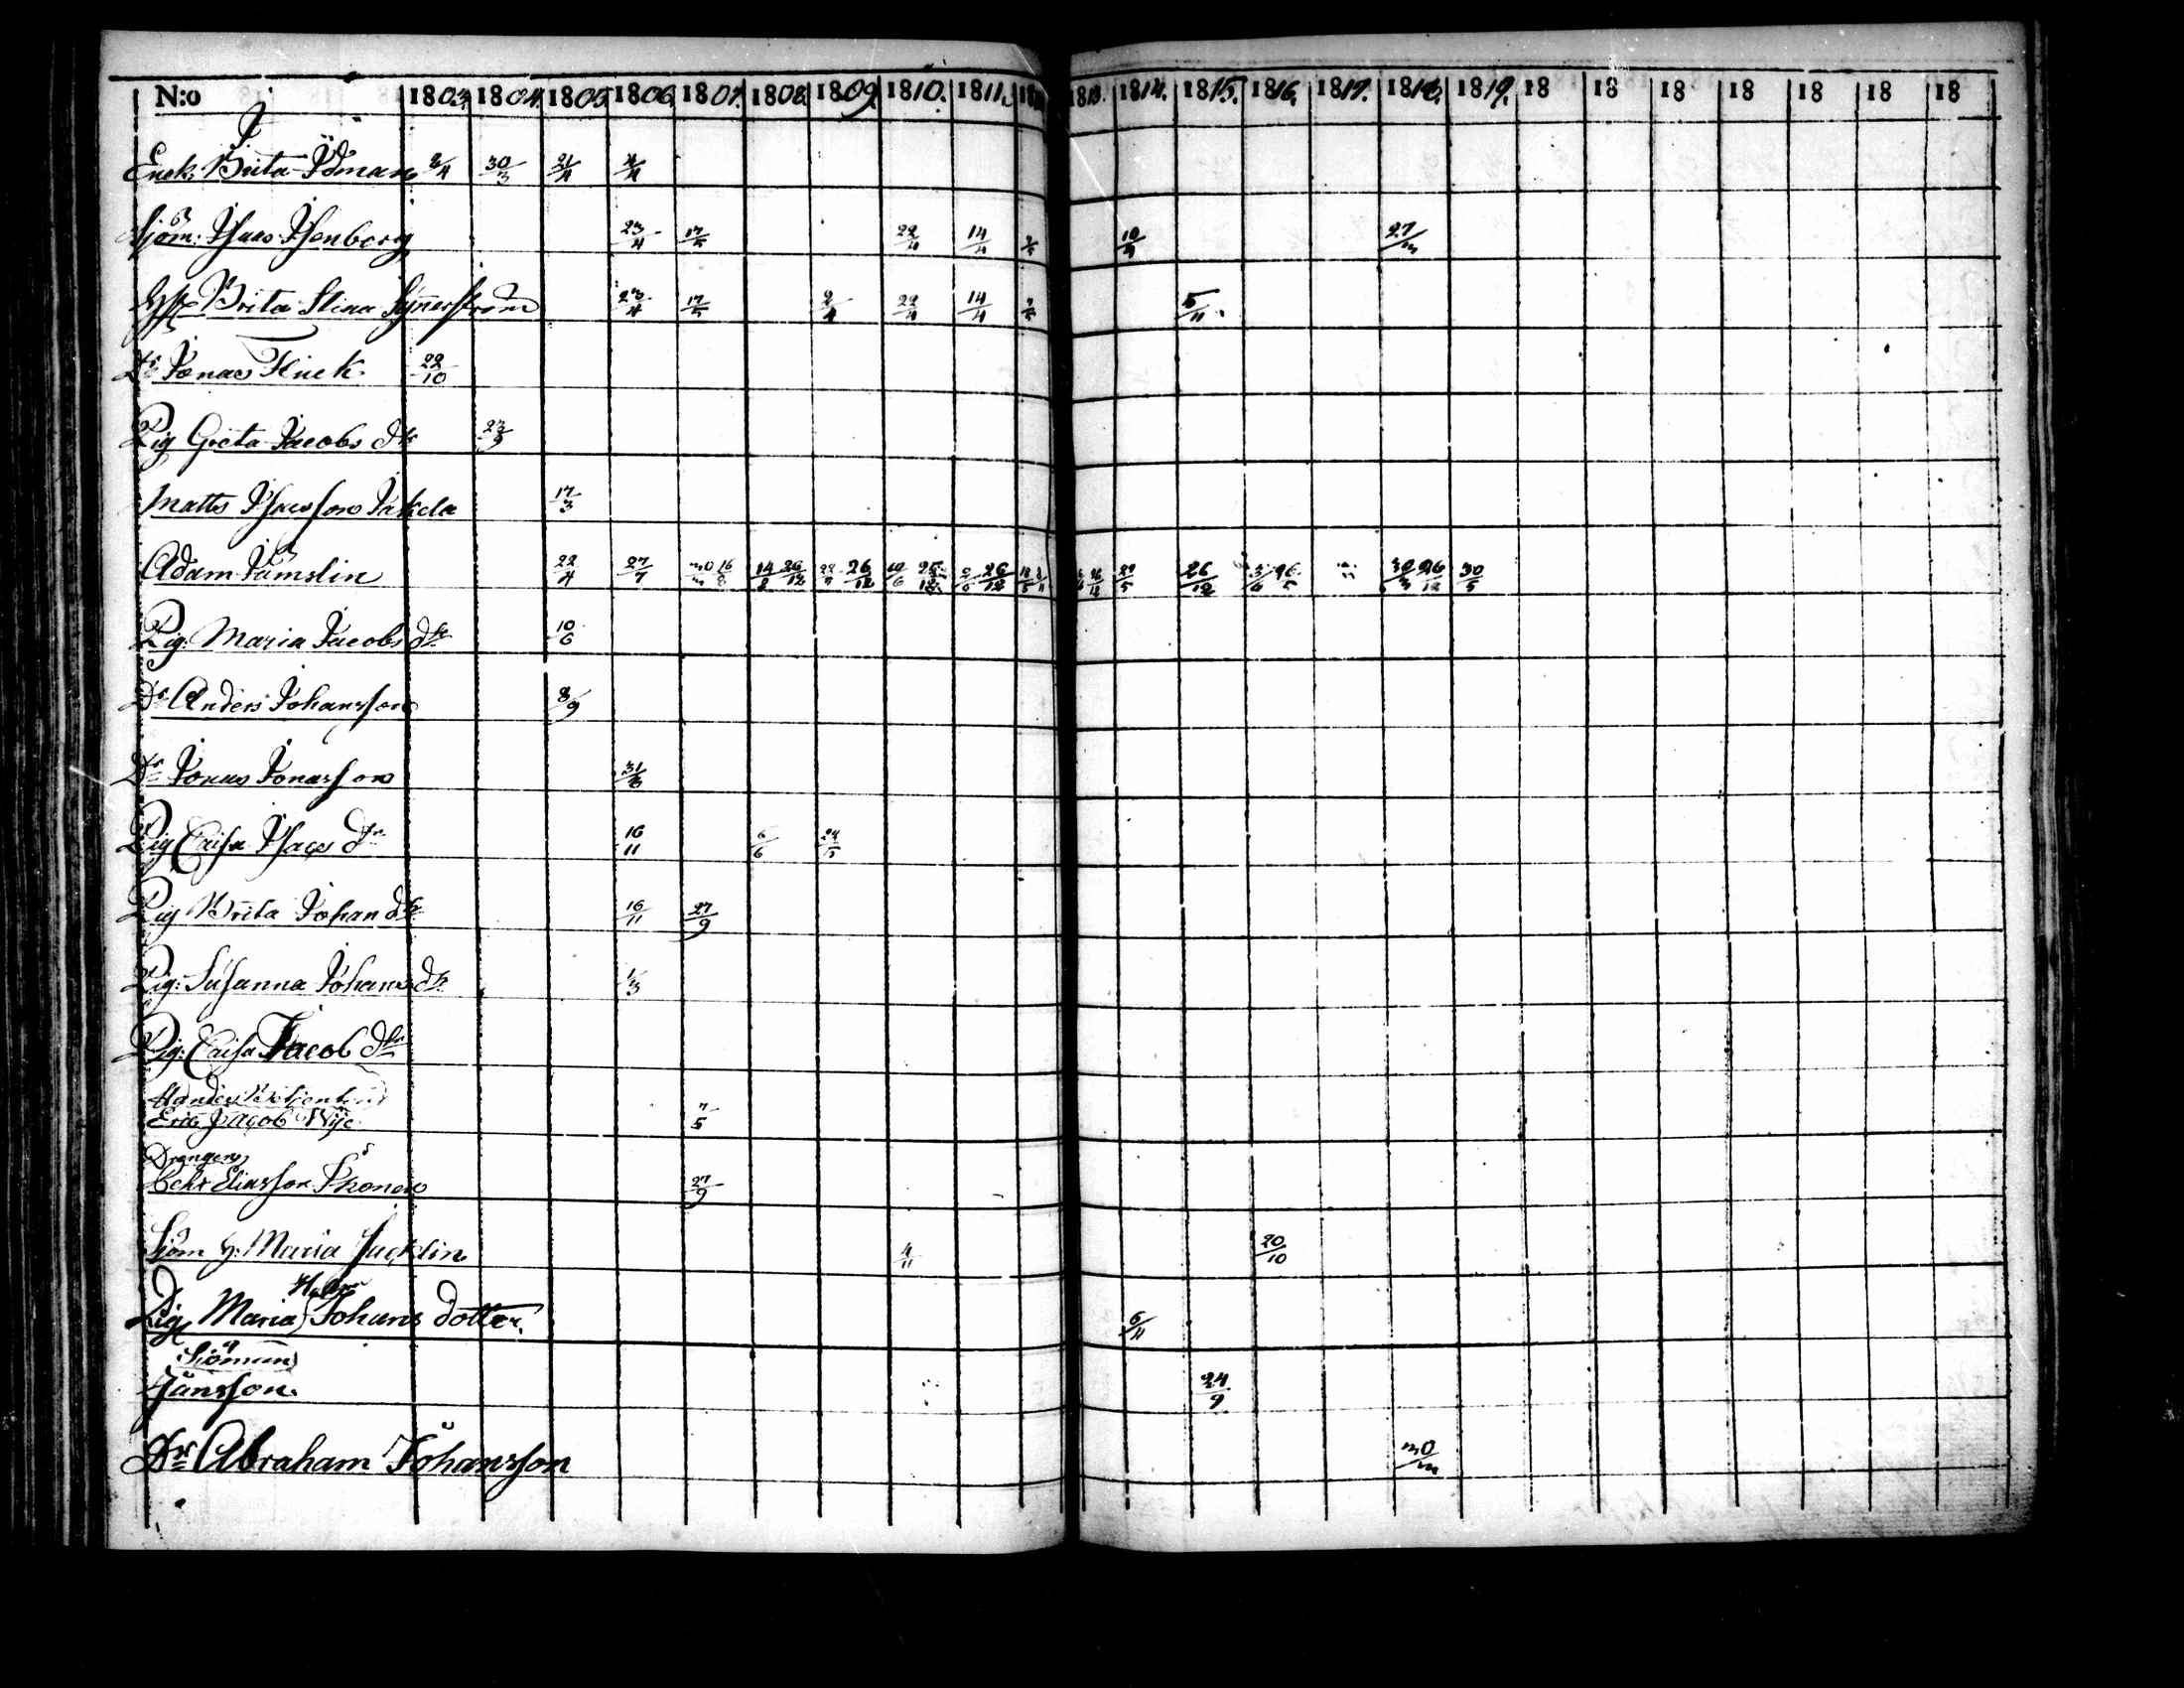 N:o 1803. 1804. 1805 1806. 1807. 1808. 1809. 1810. 1811. 1813. 1814. 1815. 1816. 1817. 1818. 1819. 18 18 18 18 18 18 18
J
Enk. Brita Ödman 30/3 21/4
Sjöm: Isaac Isenberg 23/4 17/5 22/4 14/4 10/4 27/3
Hust. Brita Stina 23/4 17/5 2/4 22/4 14/4 5/11
Dr Jonas Flinck 22/10
Pig Greta Jacobs dr 23/9
Matts Isacsson Jakela 17/3
Adam Jämslin 22/4 27/7 30/3 16/8 14/8 26/12 22/5 26/12 10/6 25/12 2/6 26/12 29/5 26/12 3/6 26/5 30/3 26/12 30/5
Pig: Maria Jacobs dr 10/6
Dr Anders Johansson 8/9
Dr Jonas Jonasson 31/3
Pig Caisa Isacs dr 16/11 6/6 24/5
Pig Brita Johan dr 16/11 27/9
Pig: Susanna Johans dr 1/3
Pig: Caisa Jacob dr
Handels Betjenten
Eric Jacob Wije 7/5
Drengen
Eliasson 27/9
Sjöm h: Maria Jacklin 4/11 20/10
Pig Maria Johans dotter. 6/11
Sjöman
Jansson. 24/9
Dr Abraham Johansson 30/3